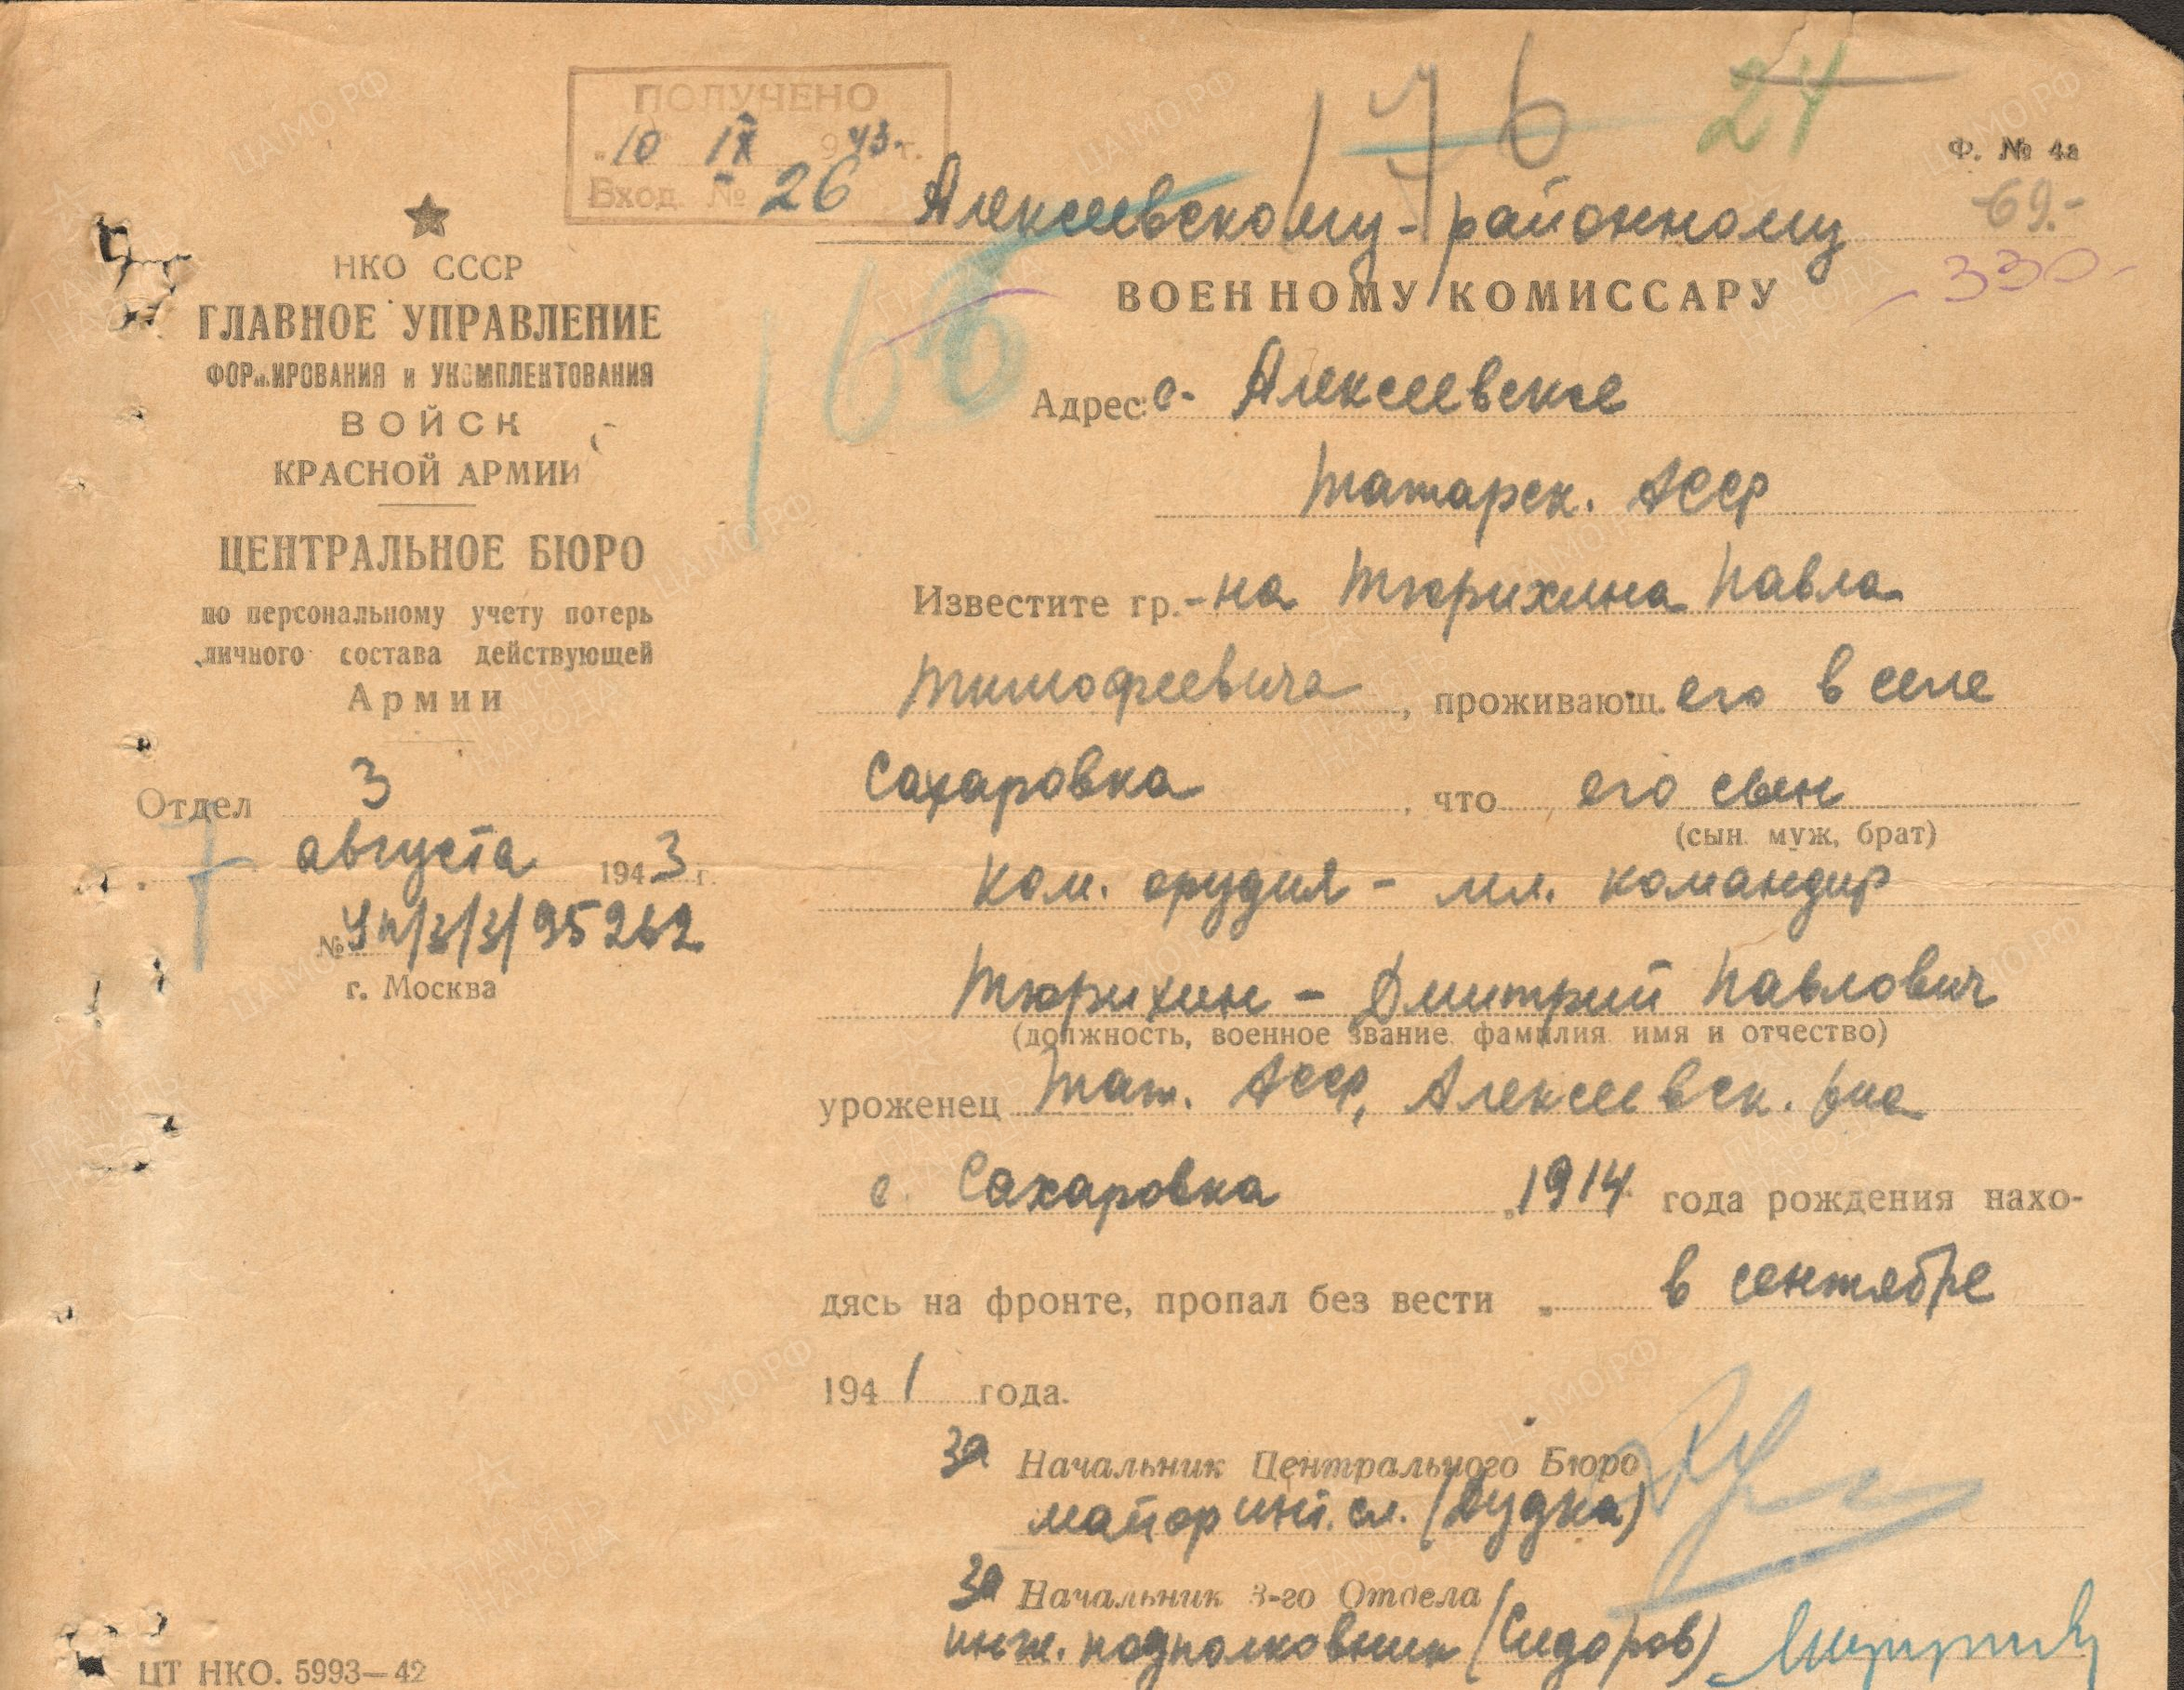 ПОЛУЧЕНО
„10 IX 943 г.
Вход. № 26
176
24
Ф. № 4а
-69.-
330-
166
★
НКО СССР
ГЛАВНОЕ УПРАВЛЕНИЕ
ФОРМИРОВАНИЯ и УКОМПЛЕКТОВАНИЯ
ВОЙСК
КРАСНОЙ АРМИИ
ЦЕНТРАЛЬНОЕ БЮРО
по персональному учету потерь
личного состава действующей
Армии
Отдел 3
„ 7 августа 1943 г.
№ Уп/3/3/95262
г. Москва
Алексеевскому-районному
ВОЕННОМУ КОМИССАРУ
Адрес: с. Алексеевское
Татарск. АССР
Известите гр.-на Тюрихина Павла
Тимофеевича, проживающ. его в селе
Сахаровка, что его сын
(сын, муж, брат)
Ком. орудия - мл. командир
Тюрихин - Дмитрий Павлович
(должность, военное звание, фамилия, имя и отчество)
уроженец Тат. АССР, Алексеевск. р-на
с. Сахаровка, 1914 года рождения нахо-
дясь на фронте, пропал без вести „ в сентябре
1941 года.
За Начальник Центрального Бюро
майор инт. сл. (Дудка)
За Начальник 3-го Отдела
инж. подполковник (Сидоров)
ЦТ НКО. 5993—42
ЦАМО.РФ
ПАМЯТЬ НАРОДА